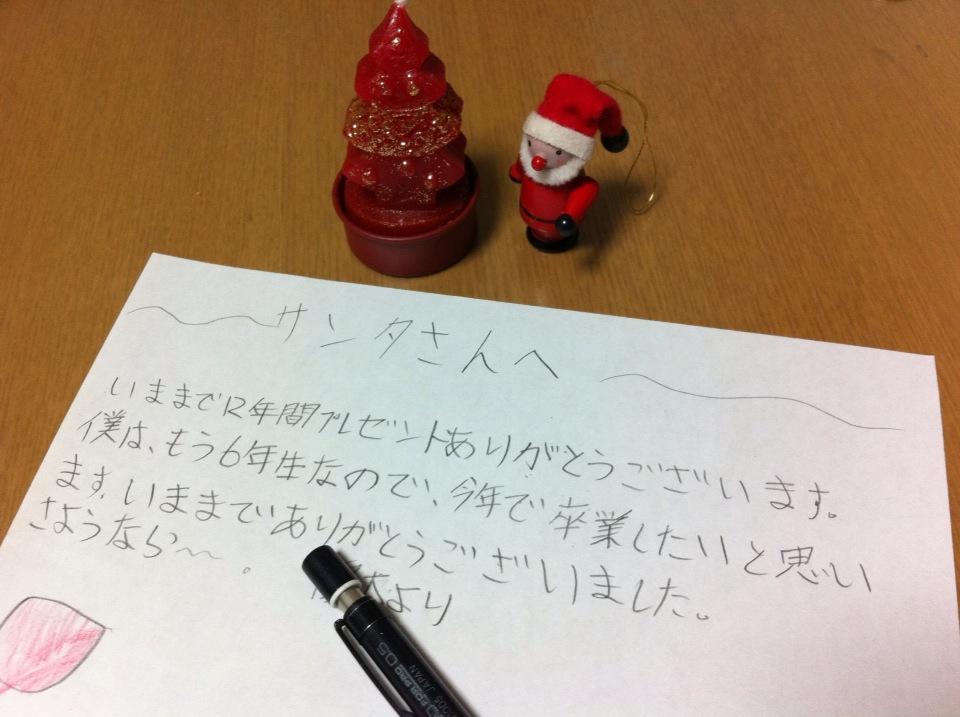 サンタさんへ
いままで12年間プレゼントありがとうございます。
僕は、もう6年生なので、今年で卒業したいと思い
ます。いままでありがとうございました。
さようなら〜。
より
0.5
JAPAN